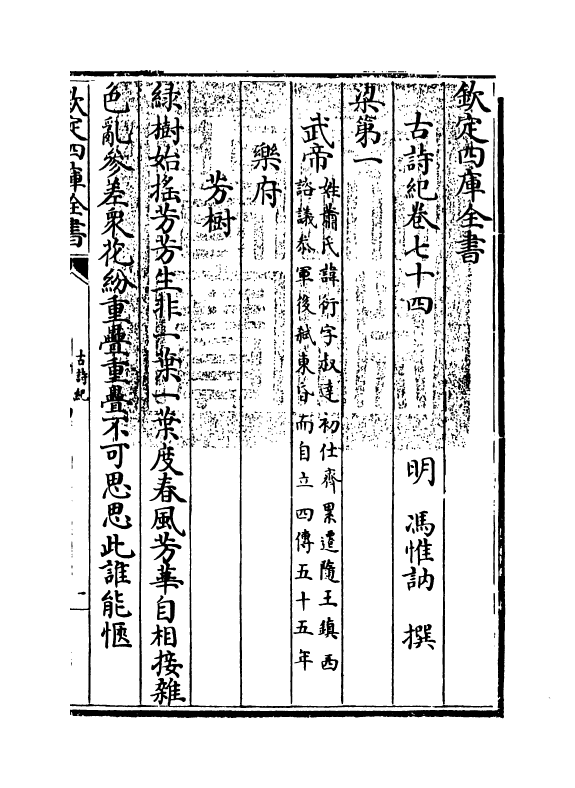 欽定四庫全書
古詩紀卷七十四
明 馮惟訥 撰
梁第一
武帝 姓蕭氏諱衍字叔達初仕齊累遷隨王鎮西
諮議參軍後弑東昏而自立四傳五十五年
樂府
芳樹
綠樹始搖芳芳生非一葉一葉度春風芳華自相接雜
色亂參差衆花紛重疊重疊不可思思此誰能愜
欽定四庫全書
古詩紀